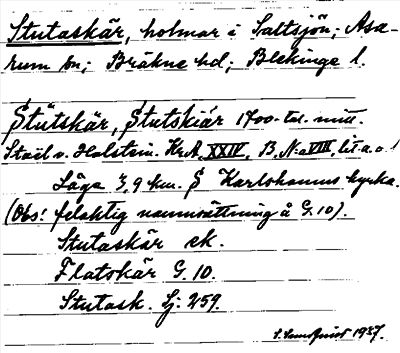 Stutaskär, holmar i Saltsjön; Asa-
rum sn; Bräkne hd; Blekinge l.
Stutskär, Stutskiär 1700-tal. mitt.
Staël v. Holstein. Kr.A, XXIV, B, N:o VIII, lit a.a!
Läge 3,9 km. S Karlshamns kyrka.
(Obs! felaktig namnsättning å G.10).
Stutaskär ek.
Flatskär G. 10.
Stutask. Lj: 259.
1937.